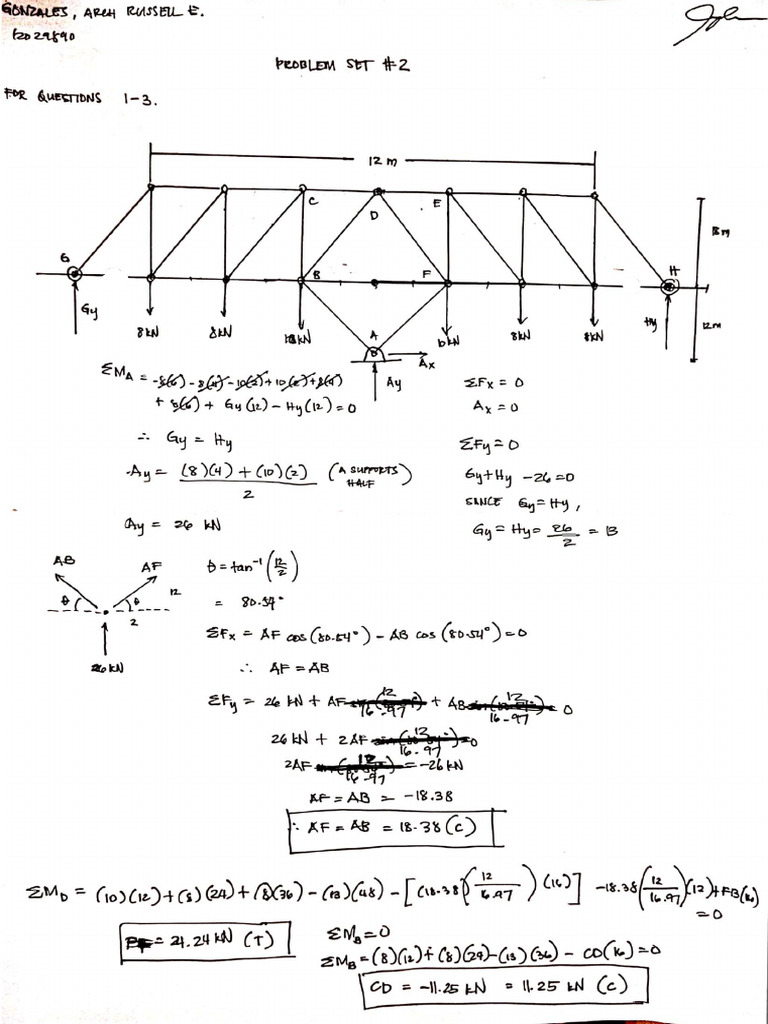 GONZALES, ARCH RUSSELL E.
12029890
PROBLEM SET #2
FOR QUESTIONS 1-3.
12 m
C
D
E
G
B
F
H
18m
12m
Gy
8kN
8kN
10kN
A
10kN
8kN
8kN
Hy
Ax
Ay
ΣMA = -8(6) - 8(4) - 10(2) + 10(2) + 8(4)
+ 8(6) + Gy(12) - Hy(12) = 0
∴ Gy = Hy
Ay = (8)(4) + (10)(2) / 2 (A SUPPORTS HALF)
Ay = 26 kN
ΣFx = 0
Ax = 0
ΣFy = 0
Gy + Hy - 26 = 0
SINCE Gy = Hy,
Gy = Hy = 26/2 = 13
AB
AF
θ
θ
12
2
26 kN
θ = tan⁻¹(12/2)
= 80.54°
ΣFx = AF cos(80.54°) - AB cos(80.54°) = 0
∴ AF = AB
ΣFy = 26 kN + AF 12/16.97 + AB 12/16.97 = 0
26 kN + 2AF 12/16.97 = 0
2AF 12/16.97 = -26 kN
AF = AB = -18.38
∴ AF = AB = 18.38 (C)
ΣMD = (10)(12) + (8)(24) + (8)(36) - (13)(48) - [(18.38)(12/16.97)(16)] - 18.38(12/16.97)(12) + FB(16) = 0
= 21.24 kN (T)
ΣMB = 0
ΣMB = (8)(12) + (8)(24) - (13)(36) - CD(16) = 0
CD = -11.25 kN = 11.25 kN (C)